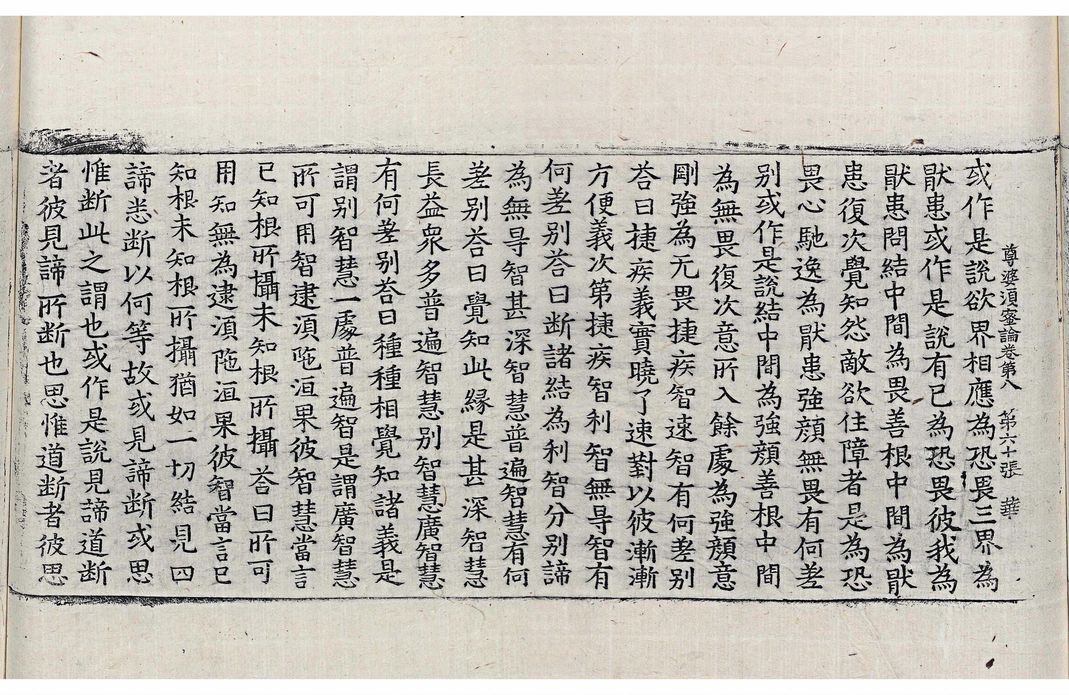 尊婆須蜜論卷第八　第六十張　華
或作是說欲界相應為恐畏三界為
猒患或作是說有已為恐畏彼我為
猒患問結中間為畏善根中間為猒
患復次覺知怨敵欲住障者是為恐
畏心馳逸為猒患強顏無畏有何差
別或作是說結中間為強顏善根中間
為無畏復次意所入餘處為強顏意
剛強為无畏捷疾智速智有何差別
荅曰捷疾義實曉了速對以彼漸漸
方便義次第捷疾智利智無㝵智有
何差別荅曰断諸結為利智分別諦
為無㝵智甚深智慧普遍智慧有何
差別荅曰覺知此緣是甚深智慧
長益衆多普遍智慧別智慧廣智慧
有何差別荅曰種種相覺知諸義是
謂別智慧一處普遍智是謂廣智慧
所可用智逮湏陁洹果彼智慧當言
已知根所攝未知根所攝荅曰所可
用知無為逮湏陁洹果彼智當言已
知根未知根所攝猶如一切結見四
諦悉断以何等故或見諦断或思
惟断此之謂也或作是說見諦道断
者彼見諦所断也思惟道断者彼思